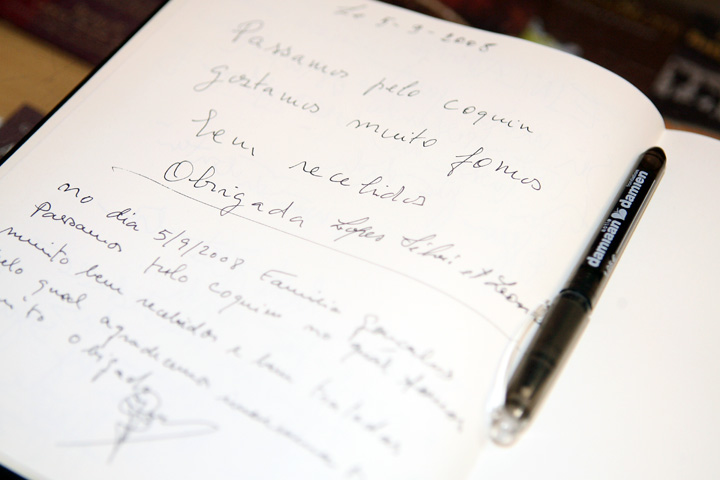 Le 5-9-2008
Passamos pelo coquin
gostamos muito fomos
bem recebidos
Obrigada Lopes Silvi et
no dia 5/9/2008 Familia Goncalves
Passamos pelo coquin no qual fomos
muito bem recebidos e bem tratados
pelo qual agradecemos
muito obrigado
damiaan damien